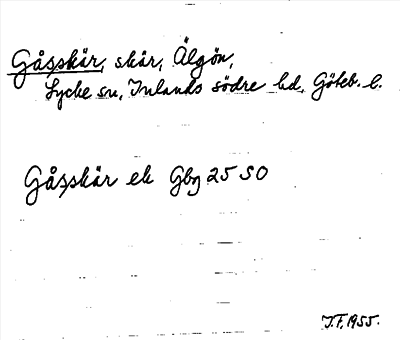 Gåsskär, skär, Älgön,
Lycke sn, Inlands södre hd, Göteb. l.
Gåsskär ek Gbg 25 SO
J.F. 1955.